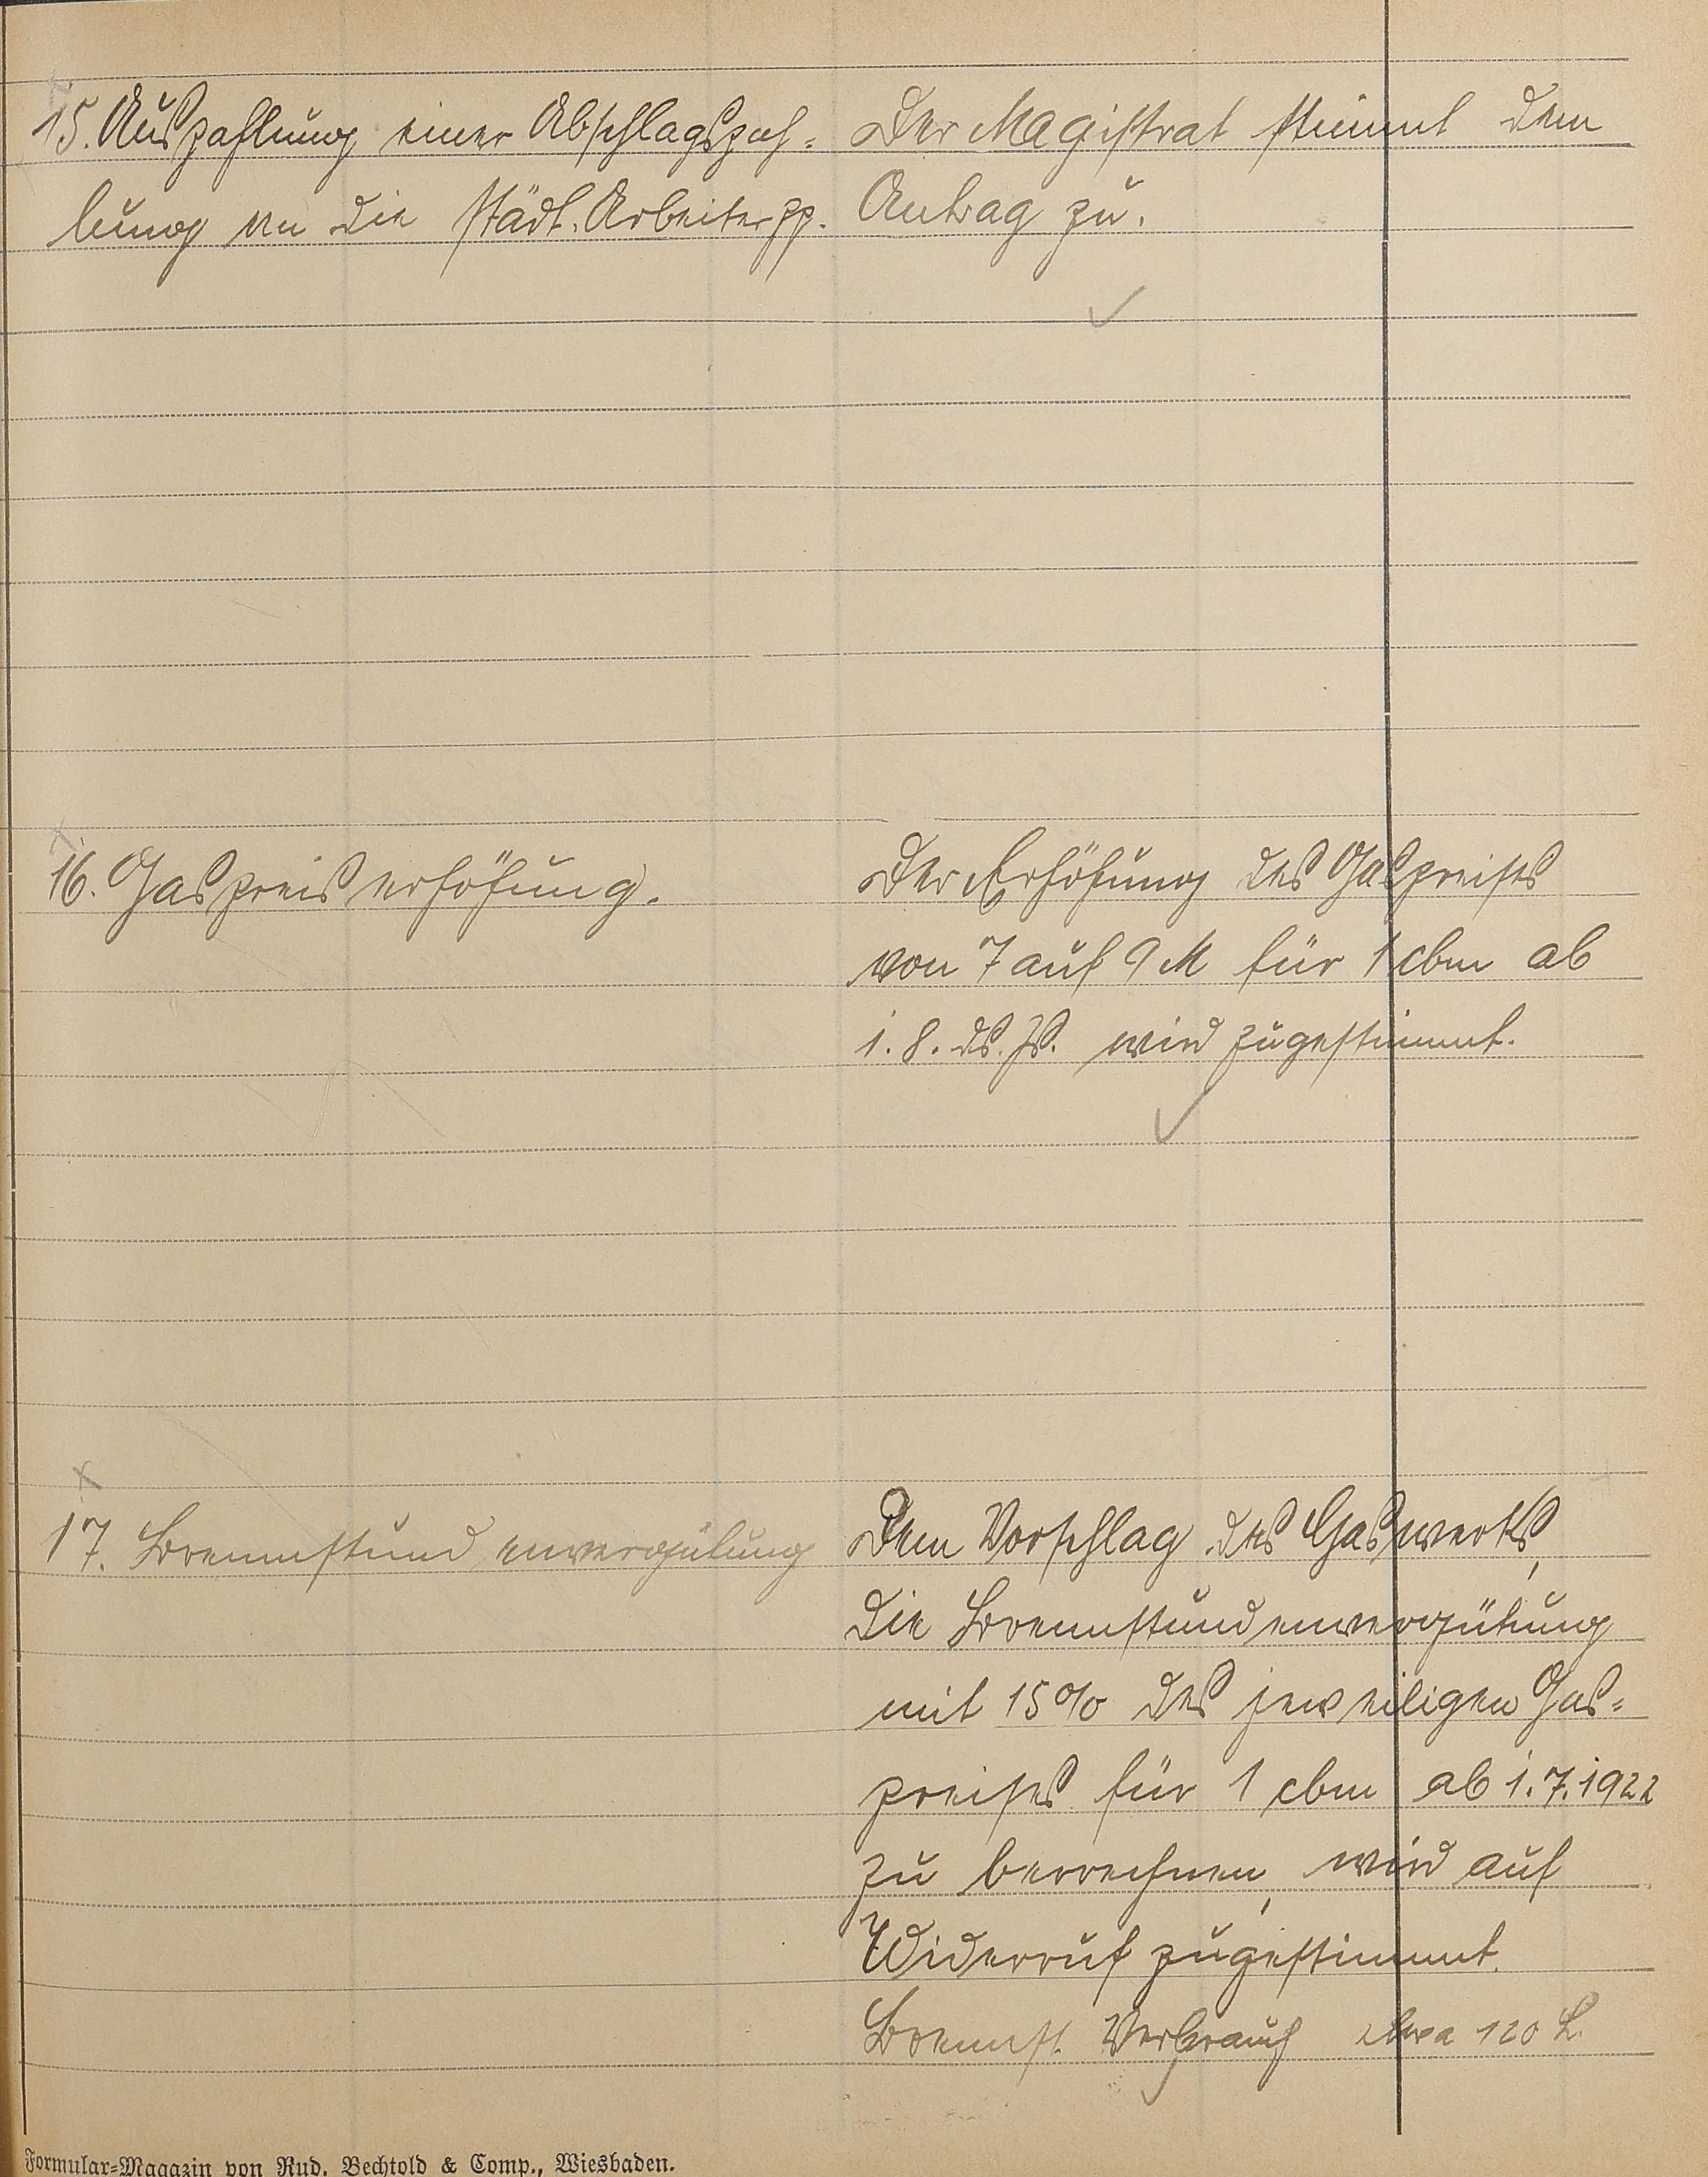 15. Auszahlung einer Abschlagszah-
lung an die städt. Arbeiter pp.
Der Magistrat stimmt dem
Antrag zu.
16. Gaspreiserhöhung.
Der Erhöhung des Gaspreises
von 7 auf 9 M für 1 cbm ab
1. 8. ds. Js. wird zugestimmt.
17. Brennstundenvergütung
Dem Vorschlag des Gaswerks,
die Brennstundenvergütung
mit 15% des jeweiligen Gas-
preises für 1 cbm ab 1.7.1922
zu berechnen, wird auf
Widerruf zugestimmt.
Brennst. Verbrauch etwa 120 L.
Formular-Magazin von Rud. Bechtold & Comp., Wiesbaden.